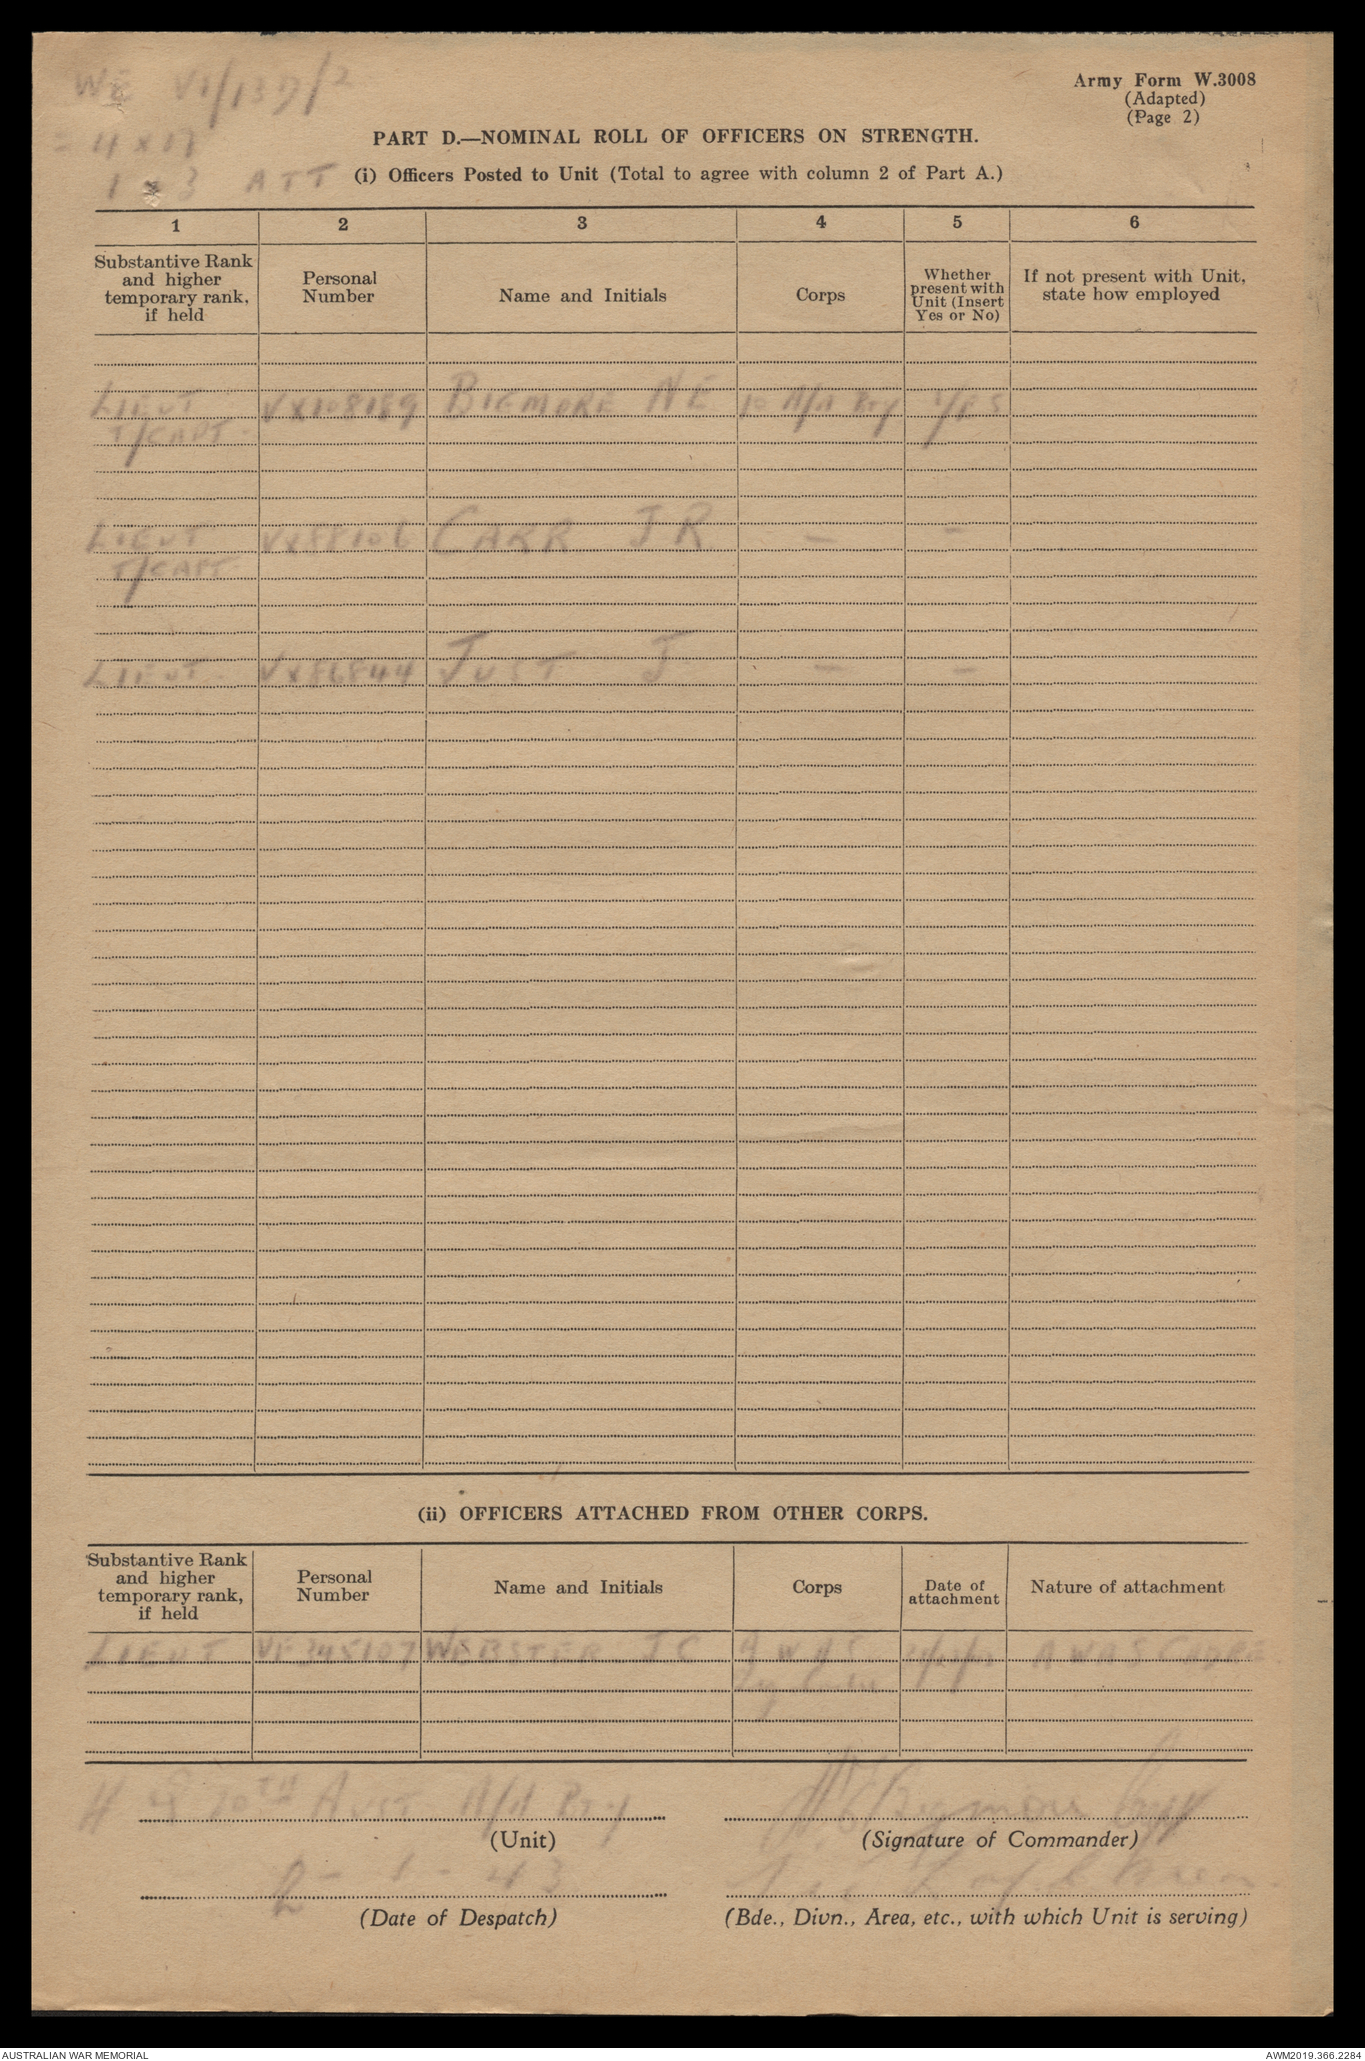 WE VI/13D/2
= 4 x 17
1 x 3 ATT
Army Form W.3008
(Adapted)
(Page 2)
PART D.—NOMINAL ROLL OF OFFICERS ON STRENGTH.
(i) Officers Posted to Unit (Total to agree with column 2 of Part A.)
1 2 3 4 5 6
Substantive Rank and higher temporary rank, if held
Personal Number
Name and Initials
Corps
Whether present with Unit (Insert Yes or No)
If not present with Unit, state how employed
LIEUT VX108189 BIGMORE NE 10 A/A Bty YES
T/CAPT.
LIEUT CARR JR — —
T/CAPT.
LIEUT. VX86844 JUST J — —
(ii) OFFICERS ATTACHED FROM OTHER CORPS.
Substantive Rank and higher temporary rank, if held
Personal Number
Name and Initials
Corps
Date of attachment
Nature of attachment
LIEUT VF345107 WEBSTER JC AWAS AWAS CADRE
10TH AUST A/A Bty
(Unit)
(Signature of Commander)
2 - 1 - 43
(Date of Despatch)
(Bde., Divn., Area, etc., with which Unit is serving)
AUSTRALIAN WAR MEMORIAL
AWM2019.366.2284